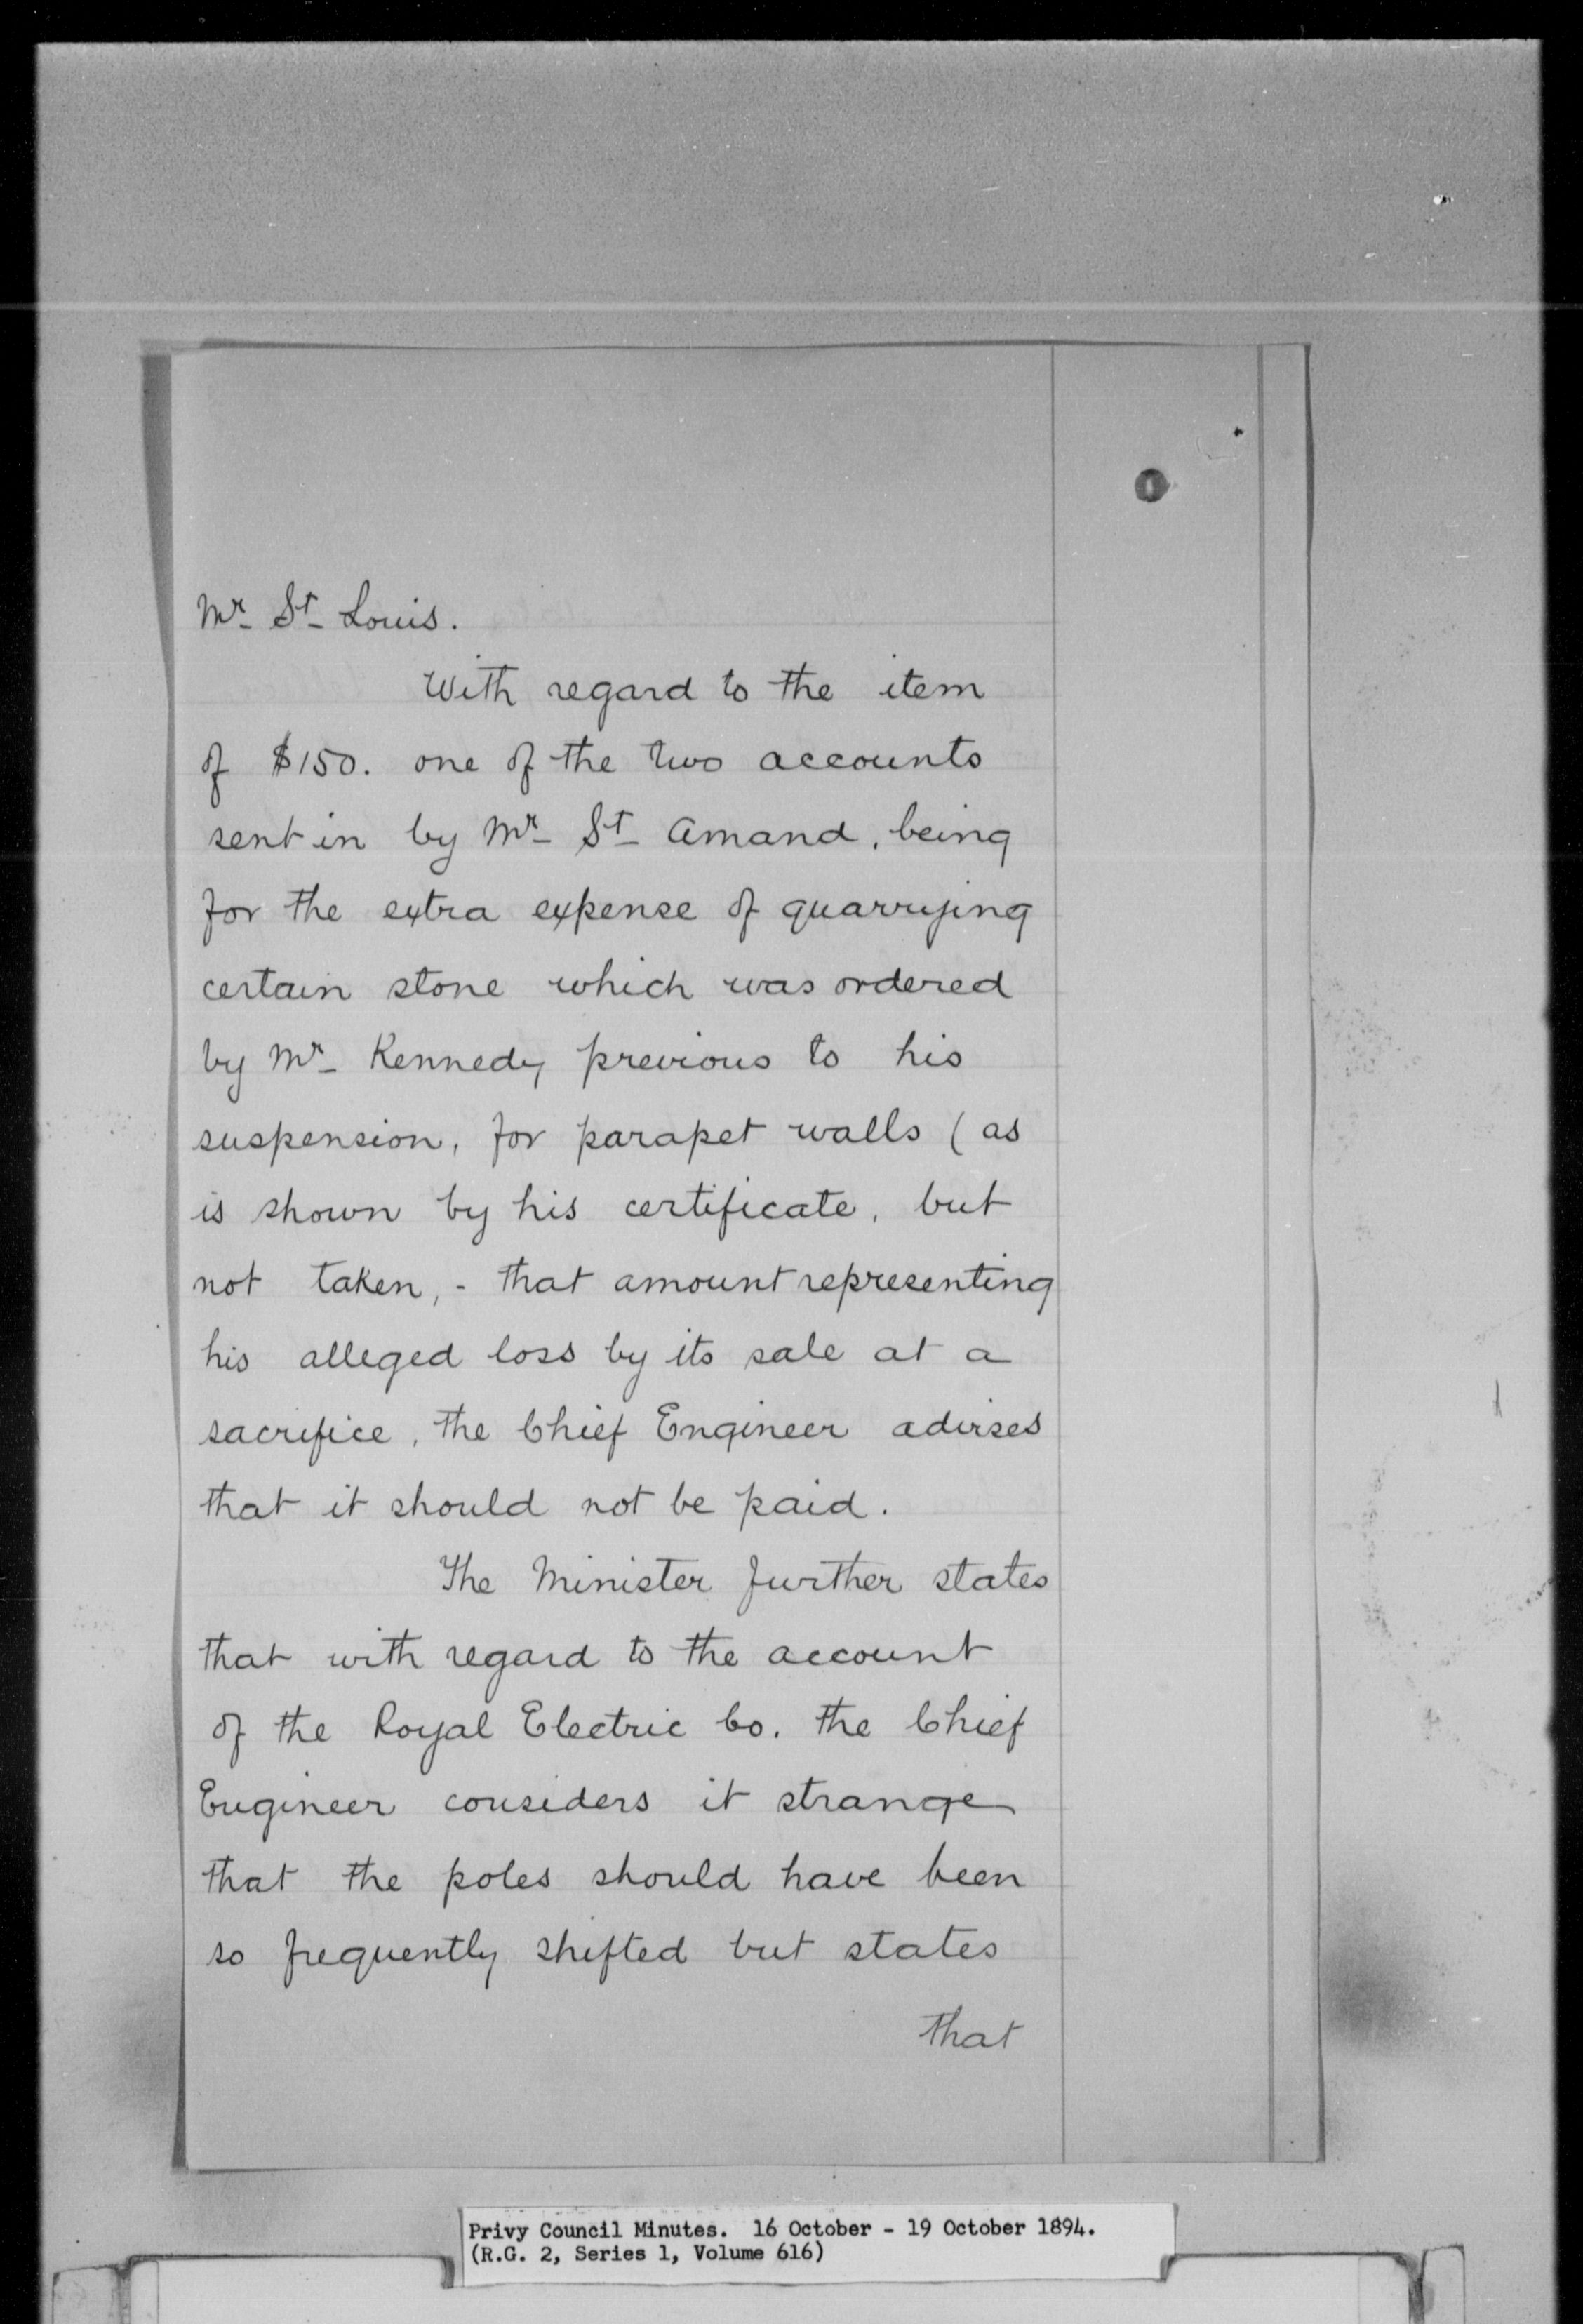 Mr St Louis.
With regard to the item
of $150. one of the two accounts
sent in by Mr St Amand, being
for the extra expense of quarrying
certain stone which was ordered
by Mr Kennedy previous to his
suspension, for parapet walls (as
is shown by his certificate, but
not taken, - that amount representing
his alleged loss by its sale at a
sacrifice, the Chief Engineer advises
that it should not be paid.
The Minister further states
that with regard to the account
of the Royal Electric Co. the Chief
Engineer considers it strange
that the poles should have been
so frequently shifted but states
that
Privy Council Minutes. 16 October - 19 October 1894.
(R.G. 2, Series 1, Volume 616)